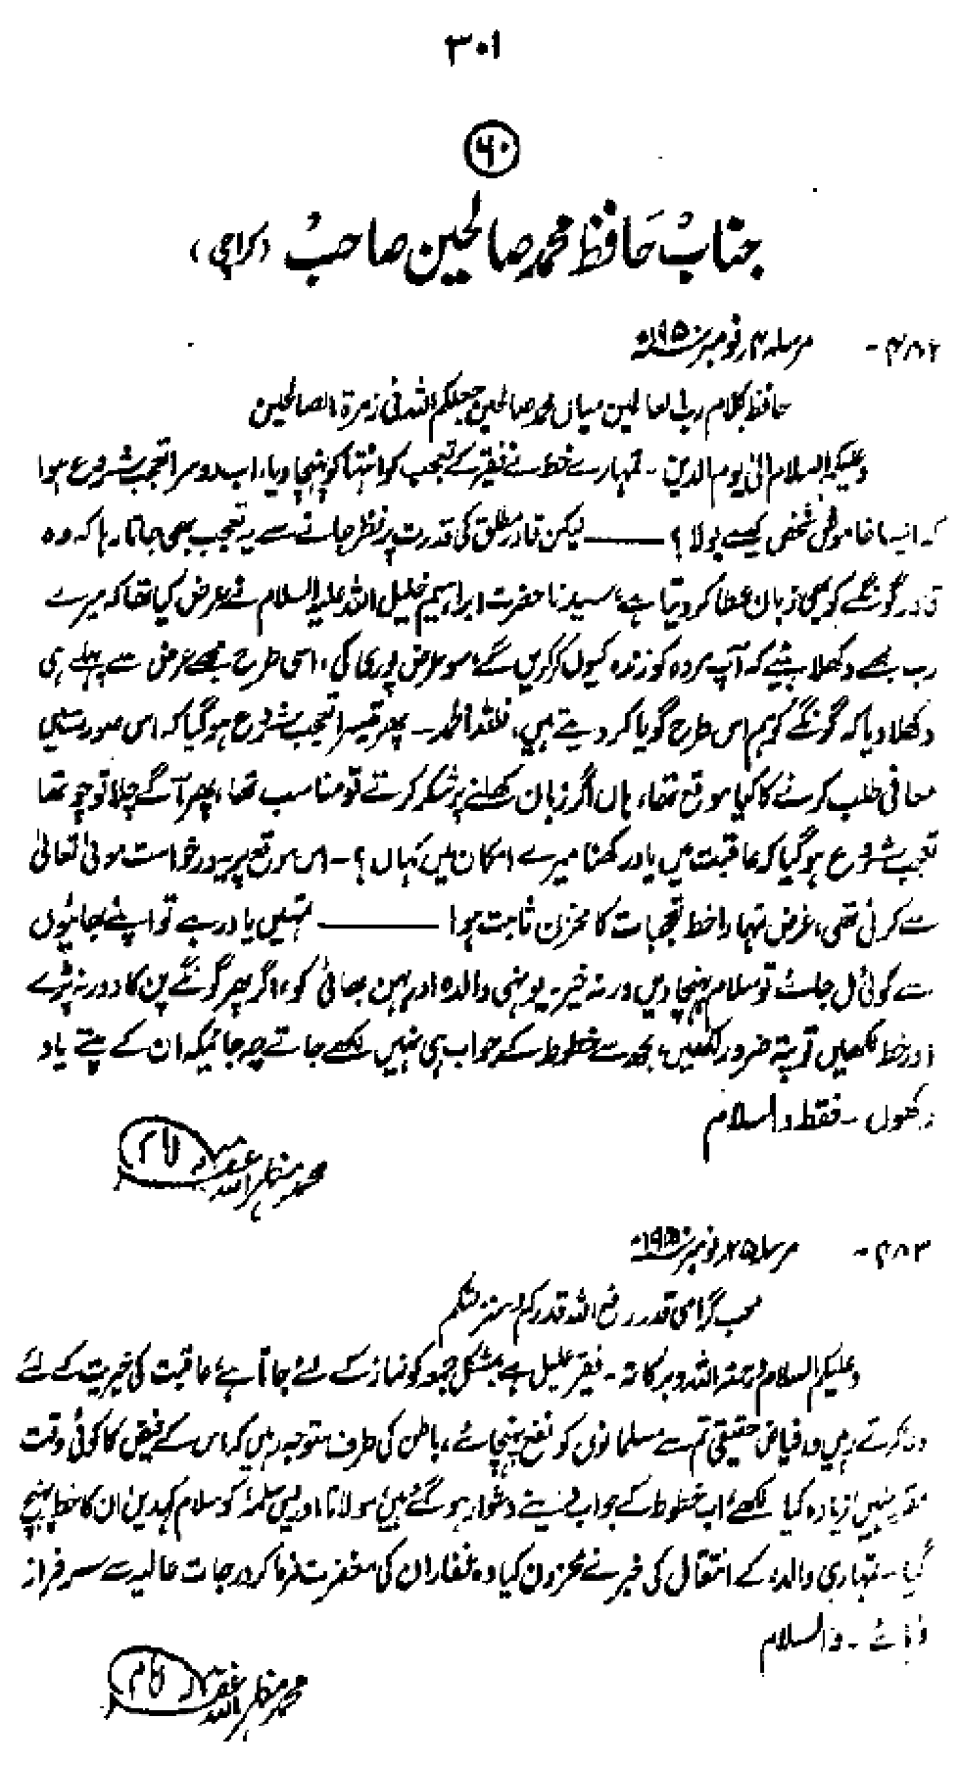 ۳۰۱
۶۰
جناب حافظ محمد صالحین صاحب (کراچی)
۴۸۲- مرسلہ ۴ر نومبر ۱۹۵۰ء
حافظ کلام رب العالمین میاں محمد صالحین جعلکم اللہ فی زمرۃ الصالحین
وعلیکم السلام الیٰ یوم الدین ۔ تمہارے خط نے فقیر کے تعجب کو انتہا کو پہنچا دیا، اب دوسرا تعجب شروع ہوا
کہ ایسا خاموش شخص کیسے بولا ؟ ——— لیکن قادر مطلق کی قدرت پر نظر جانے سے یہ تعجب بھی جاتا رہا کہ وہ
قادر گونگے کو بھی زبان عطا کر دیتا ہے، سیدنا حضرت ابراہیم خلیل اللہ علیہ السلام نے عرض کیا تھا کہ میرے
رب مجھے دکھلا دیجیے کہ آپ مردہ کو زندہ کیوں کر کریں گے؛ سو عرض پوری کی، اسی طرح مجھے عرض سے پہلے ہی
دکھلا دیا کہ گونگے کو ہم اس طرح گویا کر دیتے ہیں، فللہ الحمد ۔ پھر تیسرا تعجب شروع ہو گیا کہ اس صورت میں
معافی طلب کرنے کا کیا موقع تھا، ہاں اگر زبان کھلنے پر شکر کرتے تو مناسب تھا، پھر آگے چلا تو چوتھا
تعجب شروع ہو گیا کہ عاقبت میں یاد رکھنا میرے امکان میں کہاں ؟ ۔ اس موقع پر یہ درخواست مولیٰ تعالیٰ
سے کرنی تھی، غرض تمہارا خط تعجبات کا مخزن ثابت ہوا ——— تمہیں یاد رہے تو اپنے بھائیوں
سے کوئی مل جائے تو سلام پہنچا دیں ورنہ خیر ۔ یونہی والدہ اور بہن بھائی کو، اگر پھر گونگے پن کا دور نہ پڑے
اور خط لکھیں تو پتہ ضرور لکھیں، مجھ سے خطوط کے جواب ہی نہیں لکھے جاتے چہ جائیکہ ان کے پتے یاد
رکھوں ۔ فقط والسلام
محمد مظہر اللہ غفرلہ امام
۴۸۳- مرسلہ ۲۵ر نومبر ۱۹۵۰ء
محب گرامی قدر رفع اللہ قدرکم ومنزلتکم
وعلیکم السلام ورحمۃ اللہ وبرکاتہ ۔ فقیر علیل ہے بمشکل جمعہ کو نماز کے لئے جاتا ہے عاقبت کی خیریت کے لئے
دعا کرتے رہیں وہ فیاض حقیقی تم سے مسلمانوں کو نفع پہنچائے، باطن کی طرف متوجہ رہیں کہ اس کے فیض کا کوئی وقت
مقرر نہیں، زیادہ کیا لکھئے اب خطوط کے جواب دینے دشوار ہو گئے ہیں مولانا ادریس سلمہٗ کو سلام کہدیں ان کا خط پہنچ
گیا ۔ تمہاری والدہ کے انتقال کی خبر نے محزون کیا وہ غفار ان کی مغفرت فرما کر درجات عالیہ سے سرفراز
فرمائے ۔ والسلام
محمد مظہر اللہ غفرلہ امام